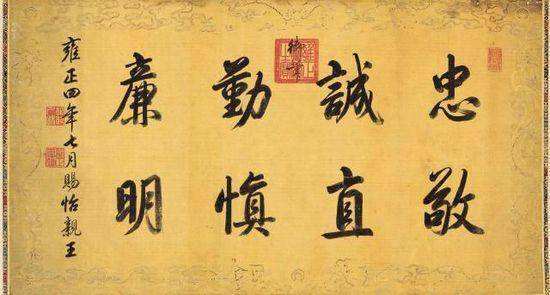 忠敬
誠直
勤慎
廉明
雍正四年七月賜怡親王